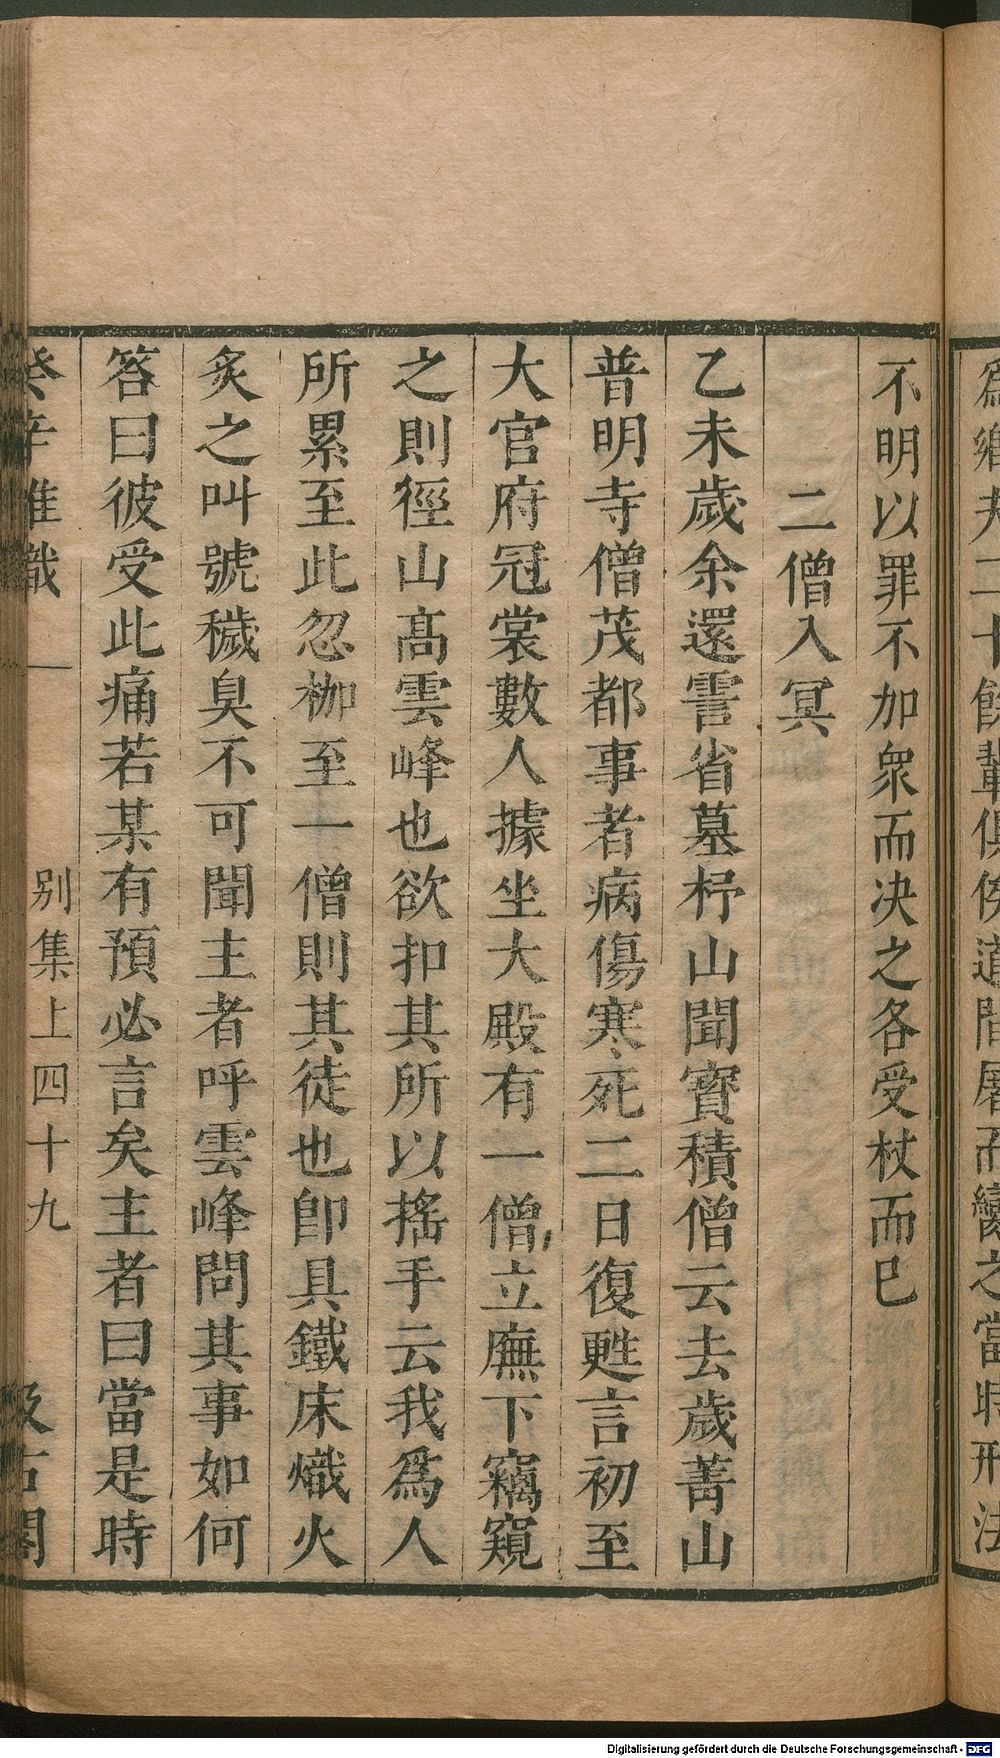 爲鄉夫二十餘輩俱俟道間屠而臠之當時刑法
不明以罪不加衆而决之各受杖而巳
二僧入冥
乙未歲余還霅省墓杼山聞寳積僧云去歲菁山
普明寺僧茂都事者病傷寒死二日復甦言初至
大官府冠裳數人據坐大殿有一僧立廡下竊窺
之則徑山髙雲峰也欲扣其所以搖手云我爲人
所累至此忽枷至一僧則其徒也卽具鐵床熾火
炙之叫號穢臭不可聞主者呼雲峰問其事如何
答曰彼受此痛若某有預必言矣主者曰當是時
癸辛雜識
别集上四十九
汲古閣
Digitalisierung gefördert durch die Deutsche Forschungsgemeinschaft - DFG